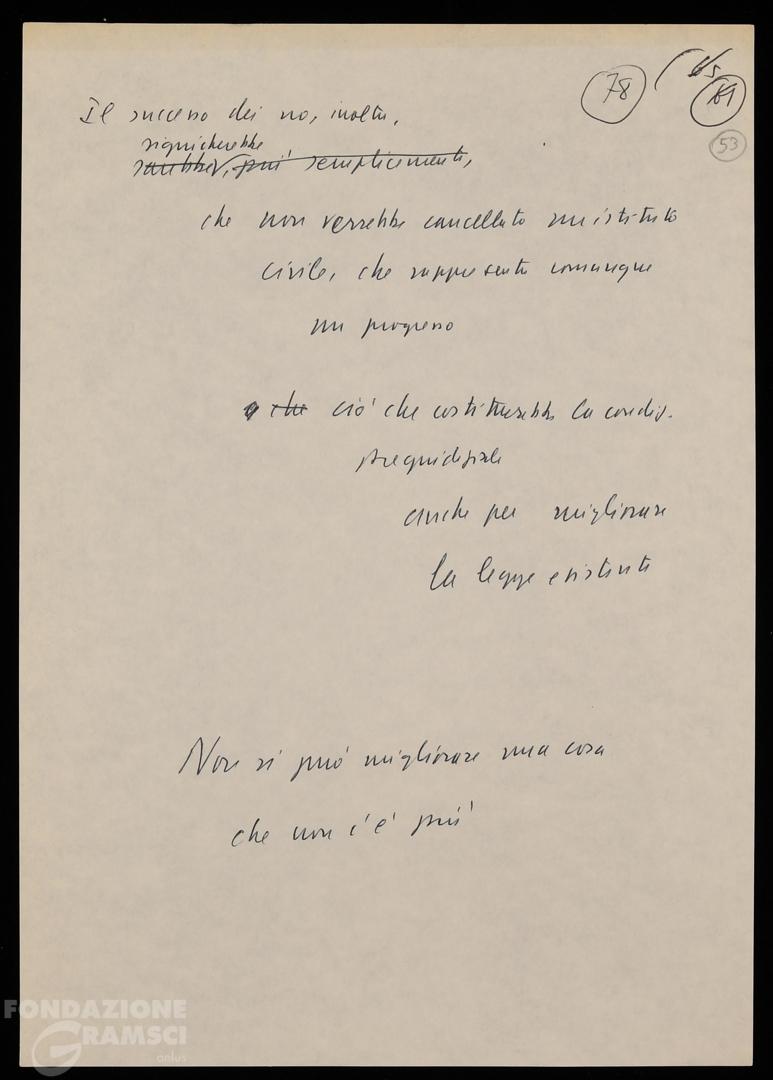 78
65
61
53
Il successo dei no, inoltre,
significherebbe
sarebbe, più semplicemente,
che non verrebbe cancellato un istituto
civile, che rappresenta comunque
un progresso
che ciò che costituirebbe la condiz.
pregiudiziale
anche per migliorare
la legge esistente
Non si può migliorare una cosa
che non c'è più
FONDAZIONE
GRAMSCI
onlus